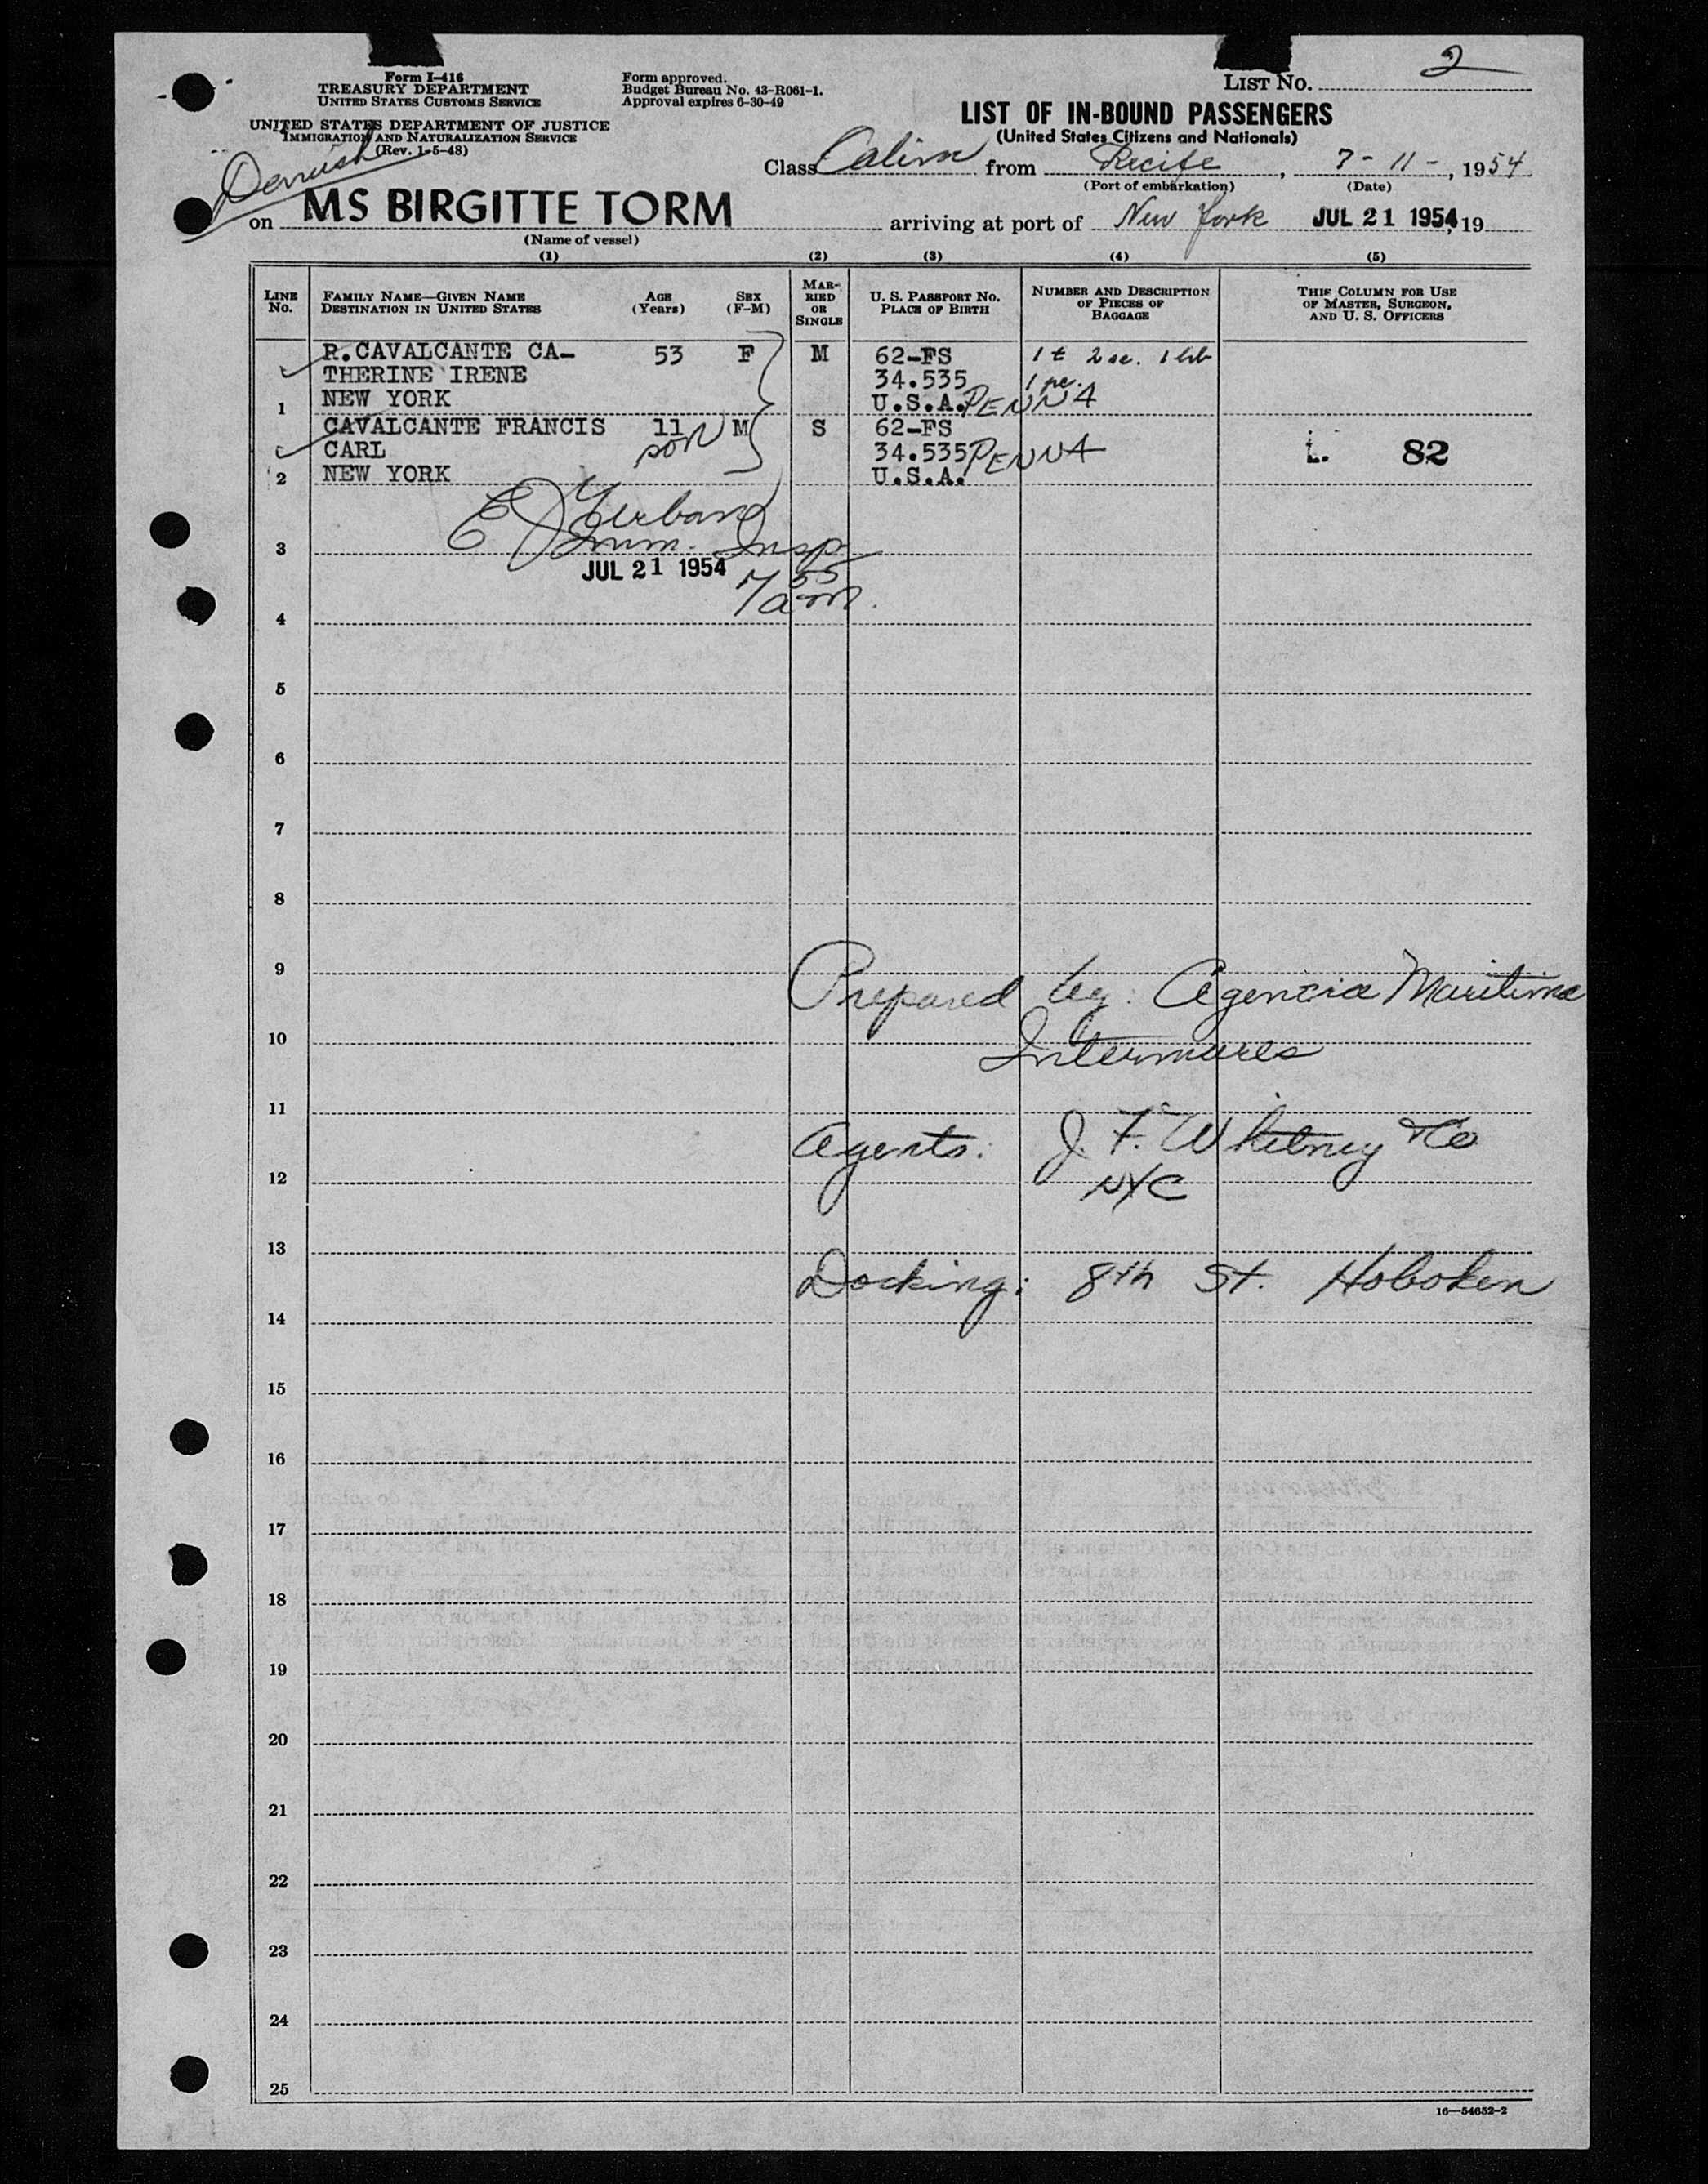 2
Form I-416
TREASURY DEPARTMENT
UNITED STATES CUSTOMS SERVICE
Form approved.
Budget Bureau No. 43-R061-1.
Approval expires 6-30-49
LIST NO.
UNITED STATES DEPARTMENT OF JUSTICE
IMMIGRATION AND NATURALIZATION SERVICE
(Rev. 1-5-48)
LIST OF IN-BOUND PASSENGERS
(United States Citizens and Nationals)
Class Cabin from Recife, 7-11-, 1954
(Port of embarkation) (Date)
Danish
on MS BIRGITTE TORM arriving at port of New York JUL 21 1954, 19
(Name of vessel)
(1) (2) (3) (4) (5)
LINE NO. FAMILY NAME—GIVEN NAME DESTINATION IN UNITED STATES AGE (Years) SEX (F-M) MARRIED OR SINGLE U. S. PASSPORT NO. PLACE OF BIRTH NUMBER AND DESCRIPTION OF PIECES OF BAGGAGE THIS COLUMN FOR USE OF MASTER, SURGEON, AND U. S. OFFICERS
R.CAVALCANTE CA- 53 F M 62-FS
THERINE IRENE 34.535 1 pc.
1 NEW YORK U.S.A. PENNA
CAVALCANTE FRANCIS 11 M S 62-FS
CARL son 34.535 PENNA L. 82
2 NEW YORK U.S.A.
3 Imm. Insp
JUL 21 1954 7 55 am.
4
5
6
7
8
9
Prepared by: Agencia Maritima
10
Intermares
11
Agents: J. F. Whitney & Co
12 NYC
13
Docking: 8th St. Hoboken
14
15
16
17
18
19
20
21
22
23
24
25
16—54652-2